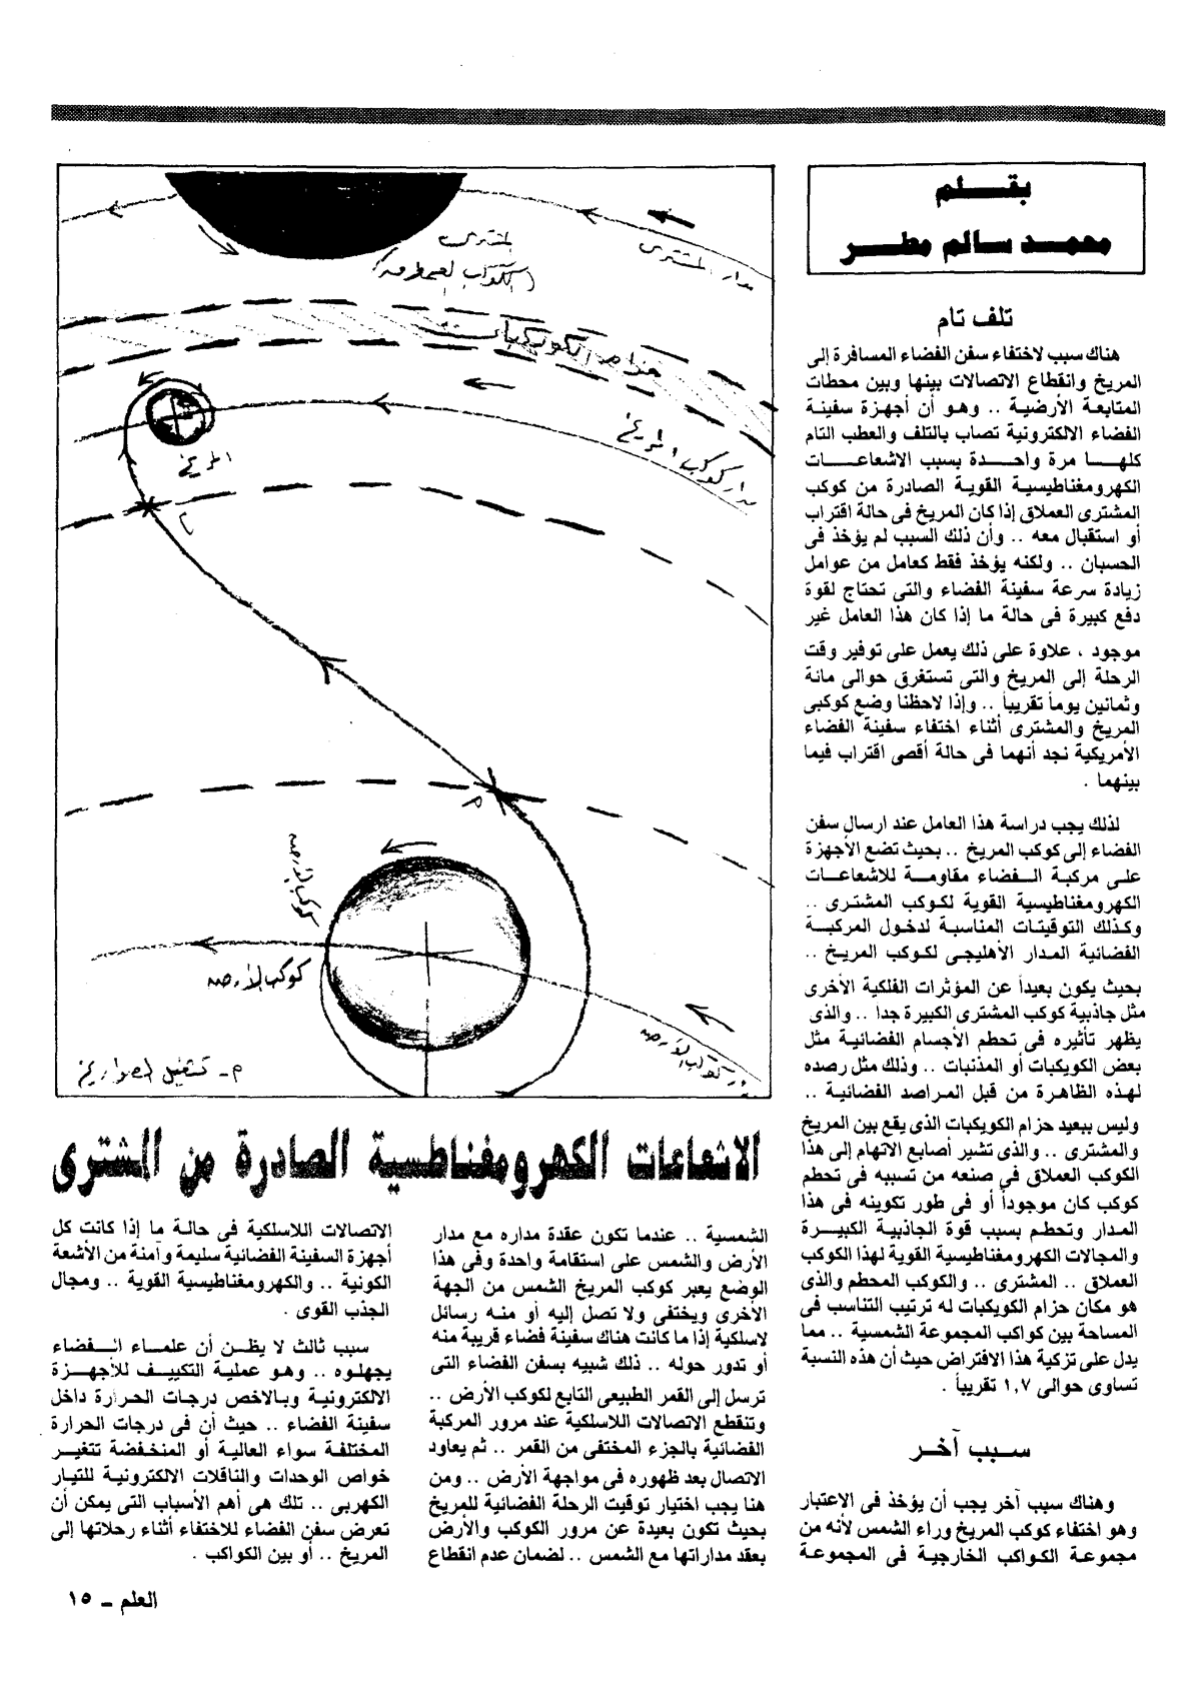 بقـــلم
محمــد سـالم مطــر
تلف تام
هناك سبب لاختفاء سفن الفضاء المسافرة إلى
المريخ وانقطاع الاتصالات بينها وبين محطات
المتابعة الأرضية .. وهو أن أجهزة سفينة
الفضاء الالكترونية تصاب بالتلف والعطب التام
كلهــا مرة واحـــدة بسبب الاشعاعـــات
الكهرومغناطيسية القوية الصادرة من كوكب
المشترى العملاق إذا كان المريخ فى حالة اقتراب
أو استقبال معه .. وأن ذلك السبب لم يؤخذ فى
الحسبان .. ولكنه يؤخذ فقط كعامل من عوامل
زيادة سرعة سفينة الفضاء والتى تحتاج لقوة
دفع كبيرة فى حالة ما إذا كان هذا العامل غير
موجود ، علاوة على ذلك يعمل على توفير وقت
الرحلة إلى المريخ والتى تستغرق حوالى مائة
وثمانين يوماً تقريباً .. وإذا لاحظنا وضع كوكبى
المريخ والمشترى أثناء اختفاء سفينة الفضاء
الأمريكية نجد أنهما فى حالة أقصى اقتراب فيما
بينهما .
لذلك يجب دراسة هذا العامل عند ارسال سفن
الفضاء إلى كوكب المريخ .. بحيث تضع الأجهزة
على مركبة الــفضاء مقاومــة للاشعاعــات
الكهرومغناطيسية القوية لكوكب المشترى ..
وكذلك التوقيتات المناسبة لدخول المركبــة
الفضائية المدار الأهليجى لكوكب المريخ ..
بحيث يكون بعيداً عن المؤثرات الفلكية الأخرى
مثل جاذبية كوكب المشترى الكبيرة جدا .. والذى
يظهر تأثيره فى تحطم الأجسام الفضائية مثل
بعض الكويكبات أو المذنبات .. وذلك مثل رصده
لهذه الظاهرة من قبل المراصد الفضائية ..
وليس ببعيد حزام الكويكبات الذى يقع بين المريخ
والمشترى .. والذى تشير أصابع الاتهام إلى هذا
الكوكب العملاق فى صنعه من تسببه فى تحطم
كوكب كان موجوداً أو فى طور تكوينه فى هذا
المدار وتحطم بسبب قوة الجاذبية الكبيــرة
والمجالات الكهرومغناطيسية القوية لهذا الكوكب
العملاق .. المشترى .. والكوكب المحطم والذى
هو مكان حزام الكويكبات له ترتيب التناسب فى
المساحة بين كواكب المجموعة الشمسية .. مما
يدل على تزكية هذا الافتراض حيث أن هذه النسبة
تساوى حوالى ١,٧ تقريباً .
ســبب آخــر
وهناك سبب آخر يجب أن يؤخذ فى الاعتبار
وهو اختفاء كوكب المريخ وراء الشمس لأنه من
مجموعة الكواكب الخارجية فى المجموعة
المشترى
مدار المشترى
حزام الكويكبات
المريخ
مدار كوكب المريخ
ب
م
كوكب الأرض
كوكب الأرض
مدار كوكب الأرض
م - تشغيل الصواريخ
الاشعاعات الكهرومغناطسية الصادرة من المشترى
الشمسية .. عندما تكون عقدة مداره مع مدار
الأرض والشمس على استقامة واحدة وفى هذا
الوضع يعبر كوكب المريخ الشمس من الجهة
الأخرى ويختفى ولا تصل إليه أو منه رسائل
لاسلكية إذا ما كانت هناك سفينة فضاء قريبة منه
أو تدور حوله .. ذلك شبيه بسفن الفضاء التى
ترسل إلى القمر الطبيعى التابع لكوكب الأرض ..
وتنقطع الاتصالات اللاسلكية عند مرور المركبة
الفضائية بالجزء المختفى من القمر .. ثم يعاود
الاتصال بعد ظهوره فى مواجهة الأرض .. ومن
هنا يجب اختيار توقيت الرحلة الفضائية للمريخ
بحيث تكون بعيدة عن مرور الكوكب والأرض
بعقد مداراتها مع الشمس .. لضمان عدم انقطاع
الاتصالات اللاسلكية فى حالة ما إذا كانت كل
أجهزة السفينة الفضائية سليمة وآمنة من الأشعة
الكونية .. والكهرومغناطيسية القوية .. ومجال
الجذب القوى .
سبب ثالث لا يظــن أن علمــاء الــفضاء
يجهلوه .. وهو عملية التكييــف للأجهــزة
الالكترونية وبالاخص درجات الحرارة داخل
سفينة الفضاء .. حيث أن فى درجات الحرارة
المختلفة سواء العالية أو المنخفضة تتغيــر
خواص الوحدات والناقلات الالكترونية للتيار
الكهربى .. تلك هى أهم الأسباب التى يمكن أن
تعرض سفن الفضاء للاختفاء أثناء رحلاتها إلى
المريخ .. أو بين الكواكب .
العلم ــ ١٥